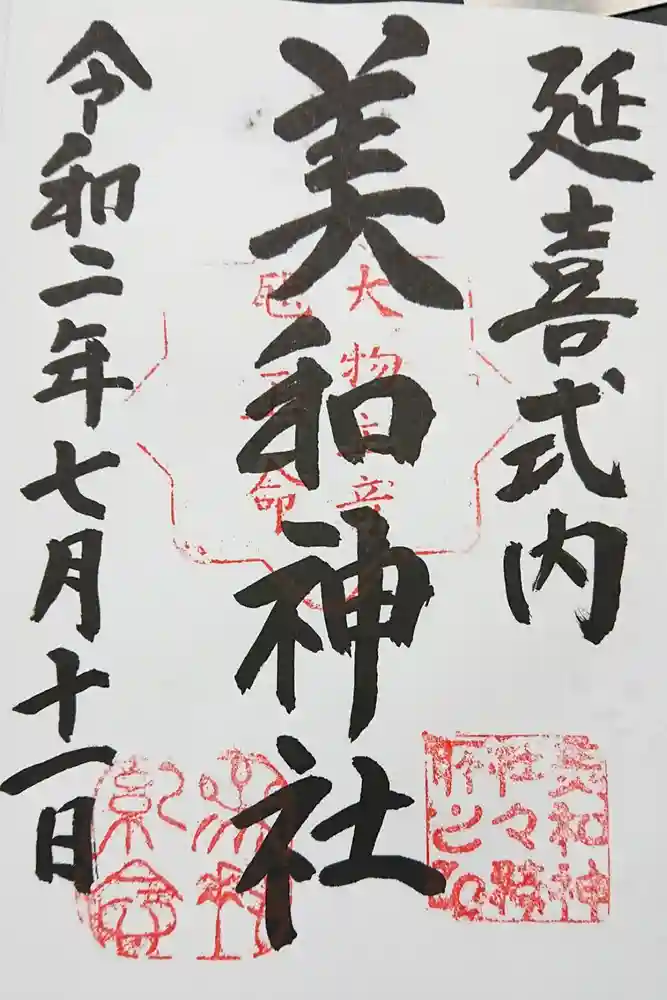 延喜式内
美和神社
令和二年七月十一日
大物主
命
美和神
参拝
紀念